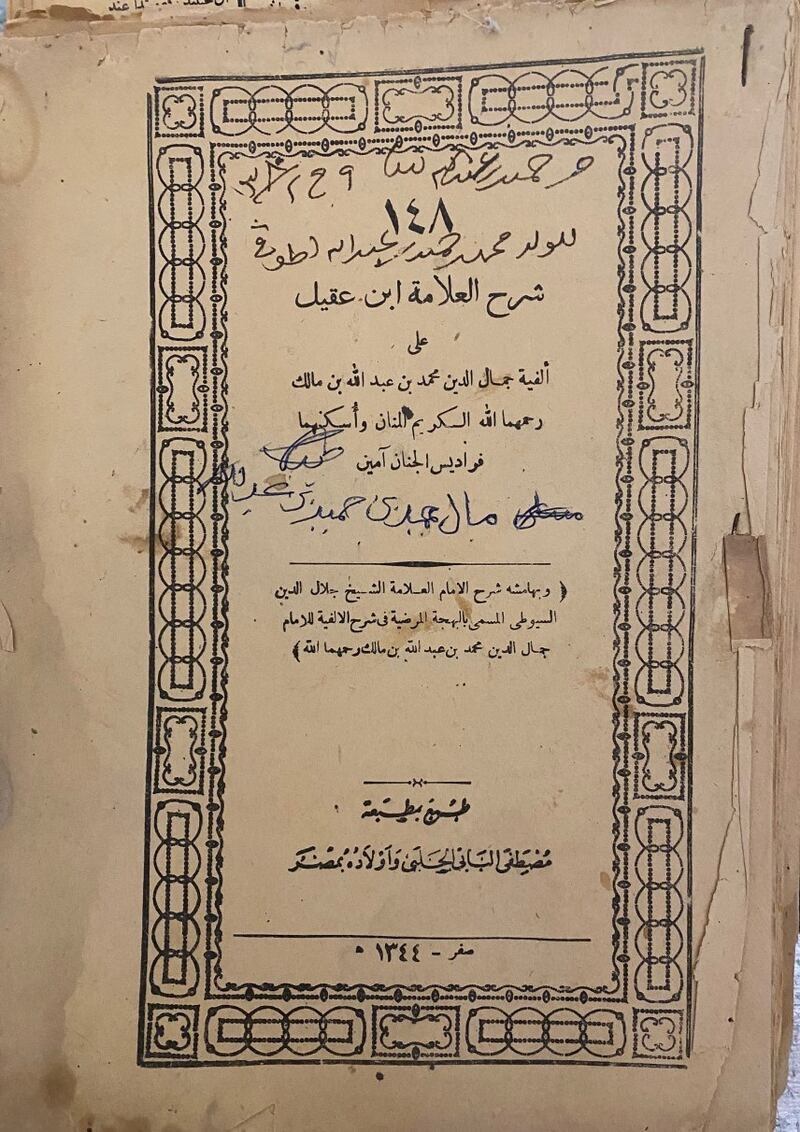 حميد عبد الله
١٤٨
للولد محمد حميد عبد الله
شرح العلامة ابن عقيل
على
ألفية جمال الدين محمد بن عبد الله بن مالك
رحمهما الله الكريم المنان وأسكنهما
فراديس الجنان آمين
مال محمد بن حميد بن عبد الله
﴿ وبهامشه شرح الامام العلامة الشيخ جلال الدين
السيوطى المسمى بالبهجة المرضية فى شرح الالفية للامام
جمال الدين محمد بن عبد الله بن مالك رحمهما الله ﴾
طبع بمطبعة
مصطفى البابى الحلبى وأولاده بمصر
صفر - ١٣٤٤ ه